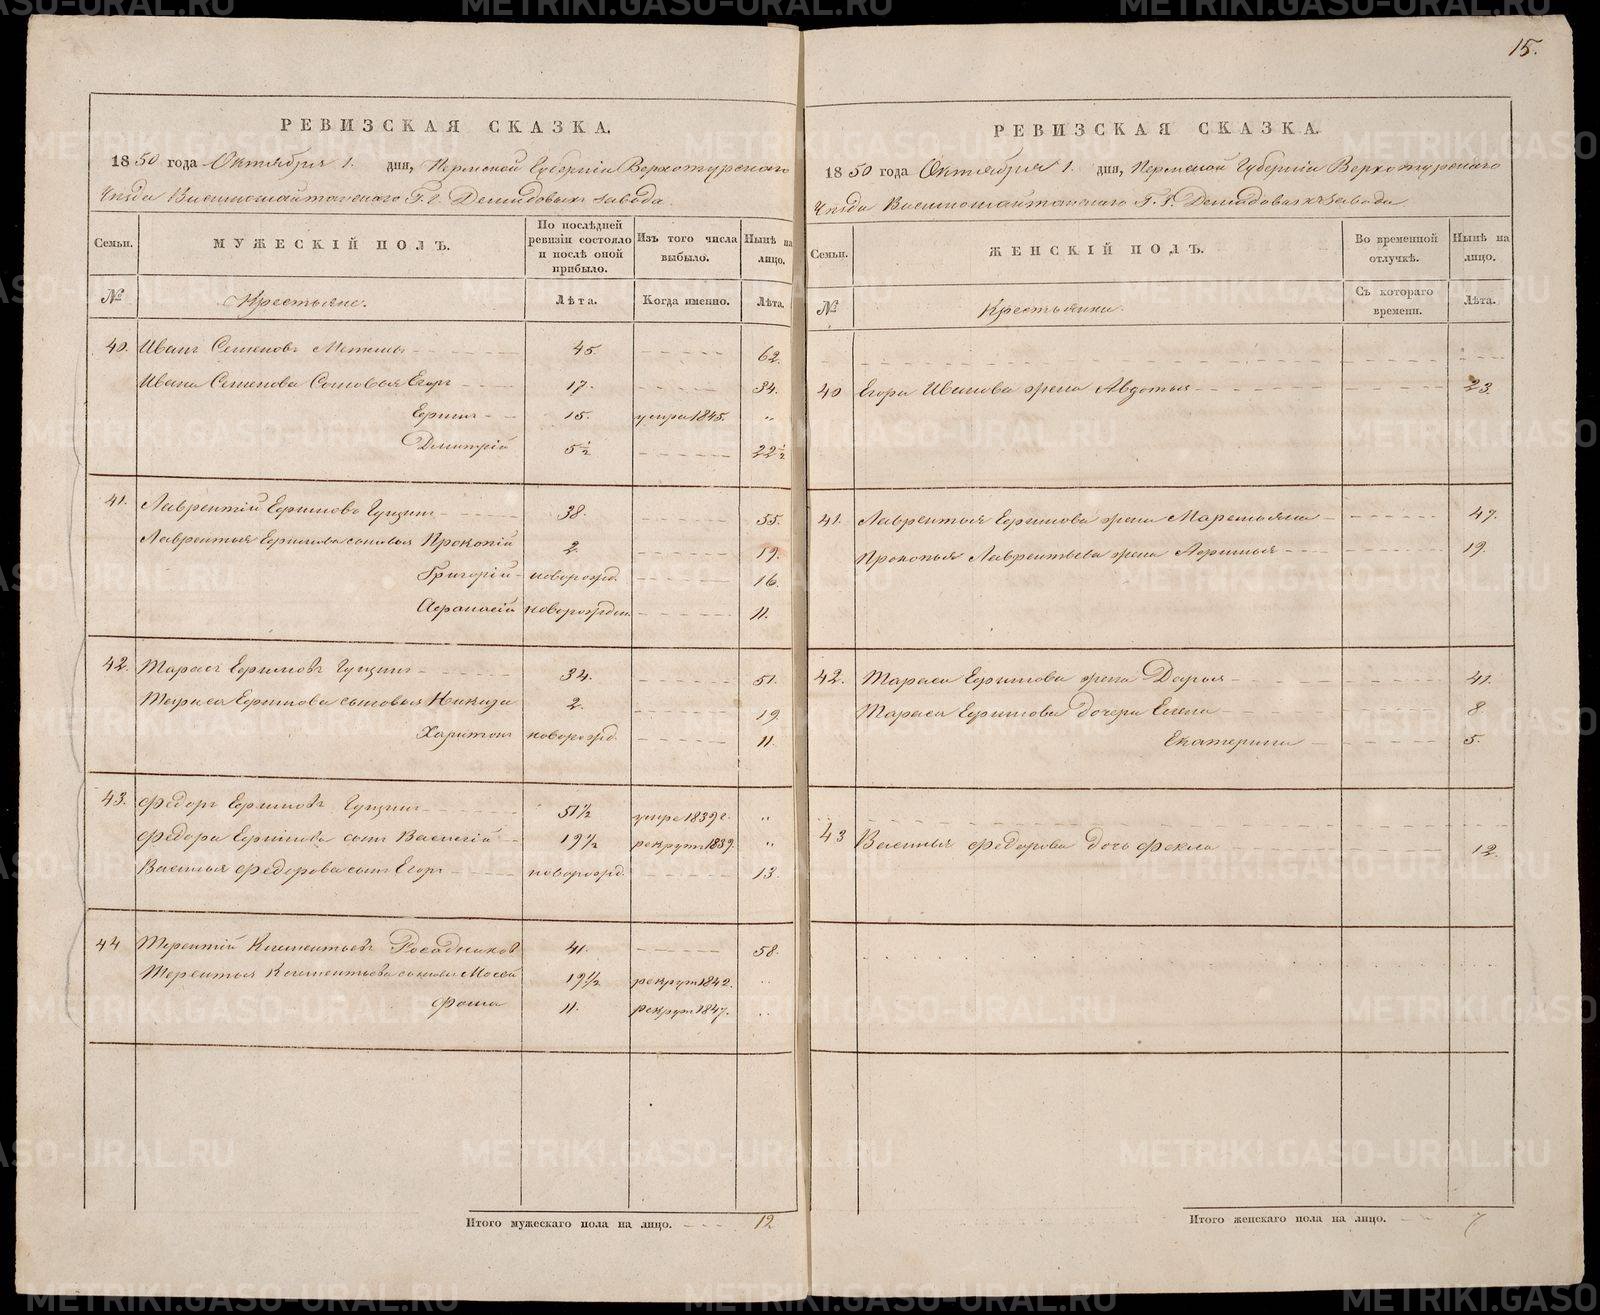 15.
РЕВИЗСКАЯ СКАЗКА.
1850 года Октября 1. дня, Пермской Губерніи Верхотурского
Уѣзда Висимошайтанского Г.г. Демидовыхъ завода.
Семьи.
МУЖЕСКІЙ ПОЛЪ.
По послѣдней ревизіи состояло и послѣ оной прибыло.
Изъ того числа выбыло.
Нынѣ на лицо.
№
Крестьяне.
Лѣта.
Когда именно.
Лѣта.
40. Иванъ Семеновъ 45. 62.
Ивана Семенова Сыновья Егоръ 17. 34.
Ефимъ 15. умре 1845. „
Дмитрій 5½ 22½
41. Лаврентій Ефимовъ Гунинъ 38. 55.
Лаврентья Ефимова сыновья Прокопій 2. 19.
Григорій новорожд. 16.
Афанасій новорожден. 11.
42. Тарасъ Ефимовъ Гунинъ 34. 51.
Тараса Ефимова сыновья Никита 2. 19
Харитонъ новорожд. 11.
43. Федоръ Ефимовъ Гунинъ 51½ умре 1839 г. „
Федора Ефимова сынъ Василій 19½ рекрут 1839. „
Василья Федорова сынъ Егоръ новорожд. 13.
44 Терентій Климентьевъ Росадниковъ 41. 58.
Терентья Климентьева сыновья Мосей 19½ рекрут 1842.
Фома 11. рекрут 1847.
Итого мужескаго пола на лицо. 12
РЕВИЗСКАЯ СКАЗКА.
1850 года Октября 1. дня, Пермской Губерніи Верхотурского
Уѣзда Висимошайтанского Г.г. Демидовыхъ завода
Семьи.
ЖЕНСКІЙ ПОЛЪ.
Во временной отлучкѣ.
Нынѣ на лицо.
№
Крестьянки.
Съ котораго времени.
Лѣта.
40 Егора Иванова жена Авдотья 23.
41. Лаврентья Ефимова жена Маремьяна 47.
Прокопья Лаврентьева жена Афимья 19.
42. Тараса Ефимова жена Дарья 41.
Тараса Ефимова дочери Елена 8
Екатерина 5.
43 Василья Федорова дочь Фекла 12
Итого женскаго пола на лицо. 7
METRIKI.GASO-URAL.RU